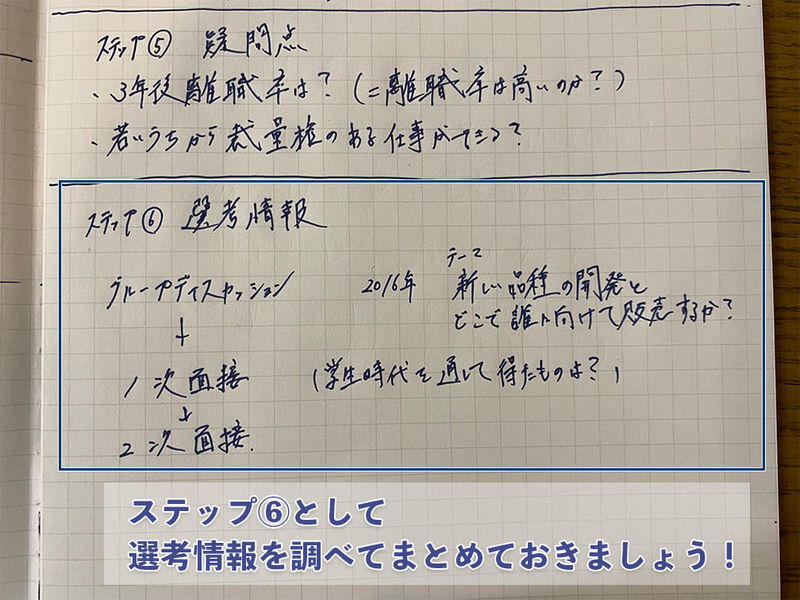 ステップ⑤ 疑問点
・3年後離職率は？(=離職率は高いのか？)
・若いうちから裁量権のある仕事ができる？
ステップ⑥ 選考情報
グループディスカッション
↓
1次面接
↓
2次面接.
2016年
テーマ
新しい品種の開発と
どこで誰に向けて販売するか？
(学生時代を通して得たものは？)
ステップ⑥として
選考情報を調べてまとめておきましょう！